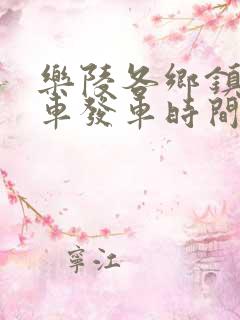 樂陵各鄉鎮
車發車時間
寧江